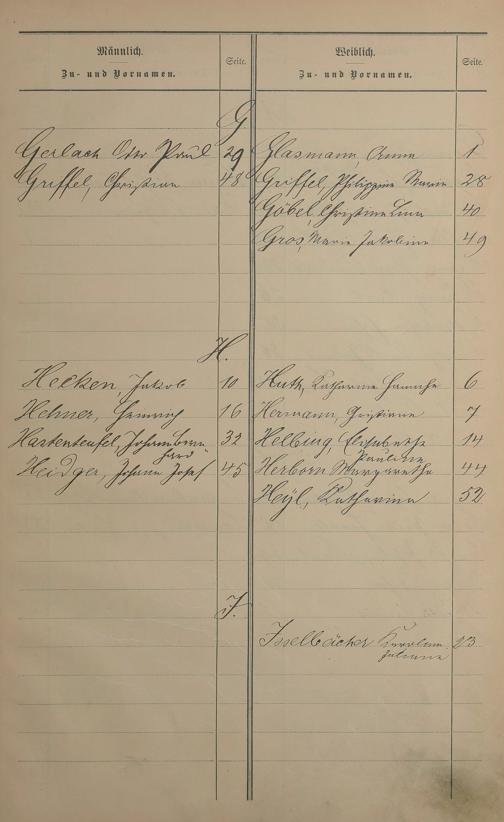 Männlich.
Zu- und Vornamen.
Seite.
Weiblich.
Zu- und Vornamen.
Seite.
G
Gerlach Otto Paul 29
Glasmann, Anna 1
Griffel, Christian 48
Griffel, Philippine Marie 28
Göbel, Christine Lina 40
Gros, Marie Jakobine 49
H.
Hecken, Jakob 10
Huth, Katharine 6
Hehner, Heinrich 16
Hermann, Christiane 7
Hartenteufel, Johann Bern 32
hard
Helbing, Elisabethe 14
Heidger, Johann Josef 45
Pauline
Herborn Margarethe 44
Heyl, Katharina 52
J.
Isselbächer Karoline 23
Juliane